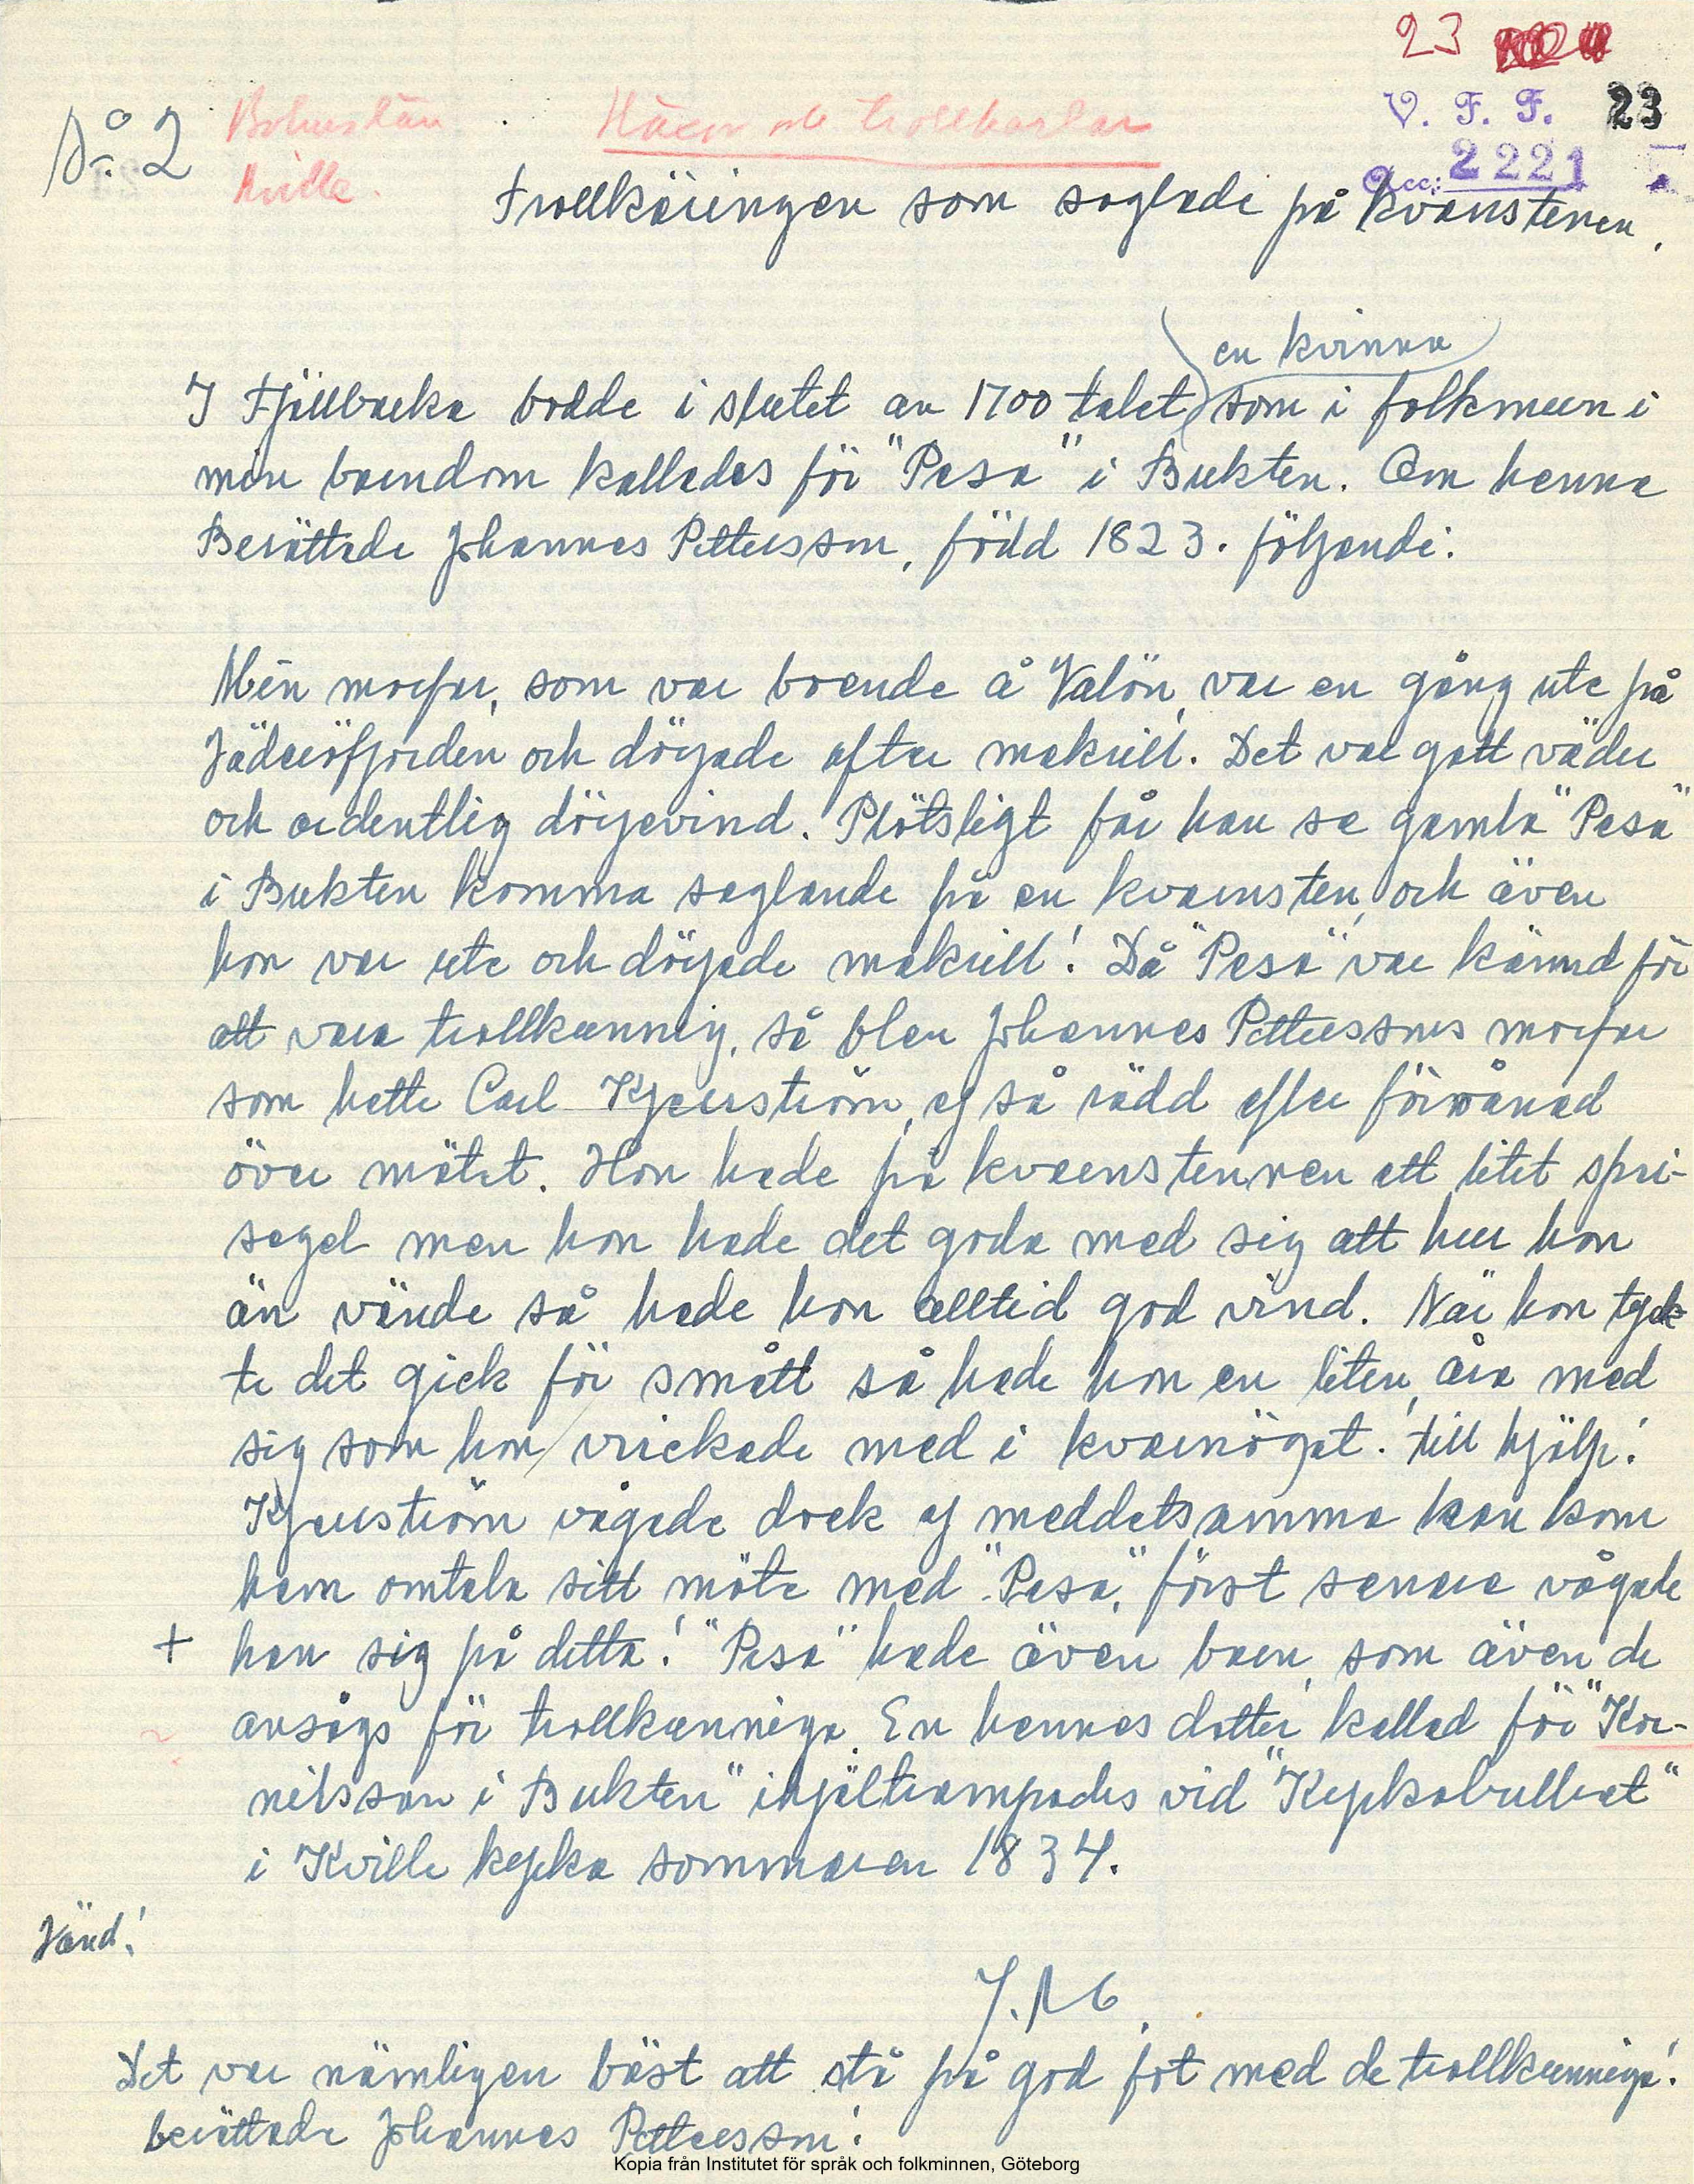 23
No 2 Bohuslän Häxor och trollkarlar V. F. F. 23
Kville. Acc: 2221
Trollkäringen som seglade på kvarnstenen.
en kvinna
I Fjällbacka bodde i slutet av 1700 talet som i folkmun i
min barndom kallades för "Pesa" i Bukten. Om henne
Berättade Johannes Pettersson, född 1823. följande:
Min morfar, som var boende å Valön, var en gång ute på
Jäderöfjorden och dörjade efter makrill! Det var gott väder
och ordentlig dörjevind. Plötsligt får han se gamla "Pesa"
i Bukten komma seglande på en kvarnsten, och även
hon var ute och dörjade makrill! Då "Pesa" var kännd för
att vara trollkunnig, så blev Johannes Petterssons morfar
som hette Carl Kjerrström, ej så rädd eller förvånad
över mötet. Hon hade på kvarnstennen ett litet spri-
segel men hon hade det goda med sig att hur hon
än vände så hade hon alltid god vind. När hon tyck-
te det gick för smått så hade hon en liten åra med
sig som hon vrickade med i kvarnögat! till hjälp!
Kjerrström vågade dock ej meddetsamma han kom
hem omtala sitt möte med "Pesa", först senare vågade
+ han sig på detta! "Pesa" hade även barn, som även de
ansågs för trollkunniga. En hennes dotter kallad för "Kor-
nilssan i Bukten" ihjältrampades vid "Kyrkobullret"
i Kville kyrka sommaren 1834.
Vänd!
J. M
Det var nämligen bäst att stå på god fot med de trollkunniga!
berättade Johannes Pettersson!
Kopia från Institutet för språk och folkminnen, Göteborg